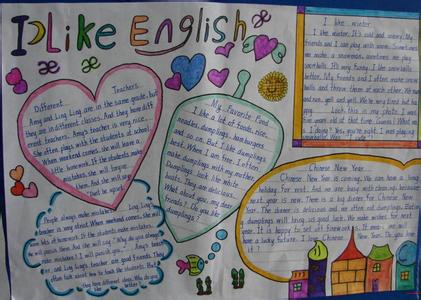 I Like English
æ æ
Different Teachers.
Amy and Ling Ling are in the same grade, but
they are in different classes. And they have diff
erent teachers. Amy's teacher is very nice.
She often plays with the students at school.
When weekend comes, she will leave a
little homework. If the students make
mistakes, she will forgive
them. And she will say
"Don't be again!
People always make mistakes. Ling Ling's
teacher is very strict. When weekend comes, she will
leave lots of homework. If the students make mistakes,
he will punish them. And he will say: "Why do you always
make mistakes? I will punish you." Amy's teach
er and Ling Ling's teacher are good friends. They
often talk about how to teach the students. But
they have different ideas. Who do you
better?
My Favorite Food
I like a lot of foods, rice,
noodles, dumplings, hamburgers
and so on. But I like dumplings
best. When I am free, I often
make dumplings with my mother.
Dumplings look like white
They are delicious.
What about you, my dear
friends? Do you like
dumplings?
I like winter.
I like winter. It's cold and snowy. My
friends and I can play with snow. Sometimes
we make a snowman, sometimes we play
snowballs. It's very funny. I like snowballs
better. My friends and I often make snow
balls and throw them at each other. We run
and run, yell and yell. We're very tired but ha
ppy. Look at this photo. I was
five years old at that time. Guess! What am
I doing? Yes, you're right. I was playing
snowballs.
Chinese New Year
Chinese New Year is coming. We can have a long
holiday for rest. And we are busy with cleaning, because
next year is new. There is a big dinner for Chinese New
Year. The dinner is delicious and we often eat dumplings. Eating
dumplings will bring us good luck. We make wishes for next
year. It is happy to set off fireworks. It means we will
have a lucky future. I love Chinese New Year. Do you love
it?